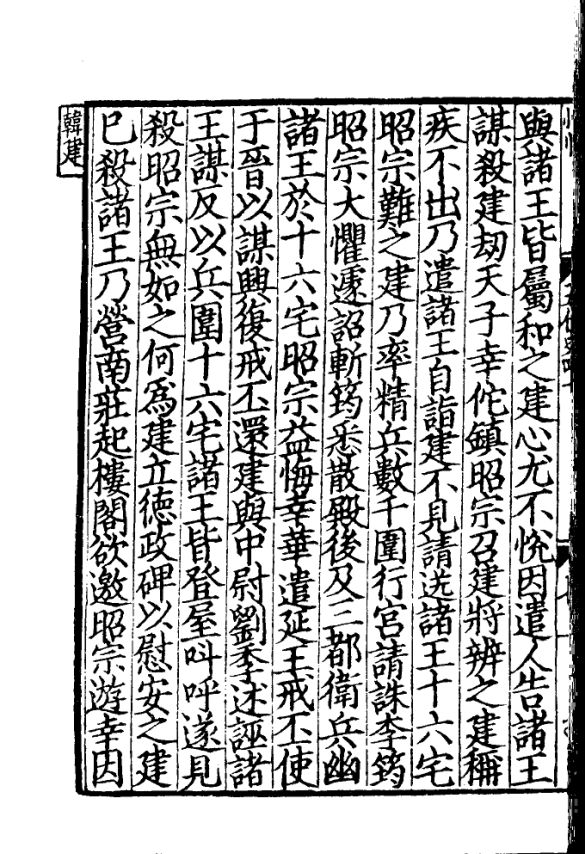 與諸王皆屬和之建心尤不悅因遣人告諸王
謀殺建劫天子幸佗鎮昭宗召建將辨之建稱
疾不出乃遣諸王自詣建不見請送諸王十六宅
昭宗難之建乃率精兵數千圍行宮請誅李筠
昭宗大懼遽詔斬筠悉散殿後及三都衛兵幽
諸王於十六宅昭宗益悔幸華遣延王戒丕使
于晉以謀興復戒丕還建與中尉劉季述誣諸
王謀反以兵圍十六宅諸王皆登屋叫呼遂見
殺昭宗無如之何爲建立德政碑以慰安之建
巳殺諸王乃營南莊起樓閣欲邀昭宗遊幸因
韓建